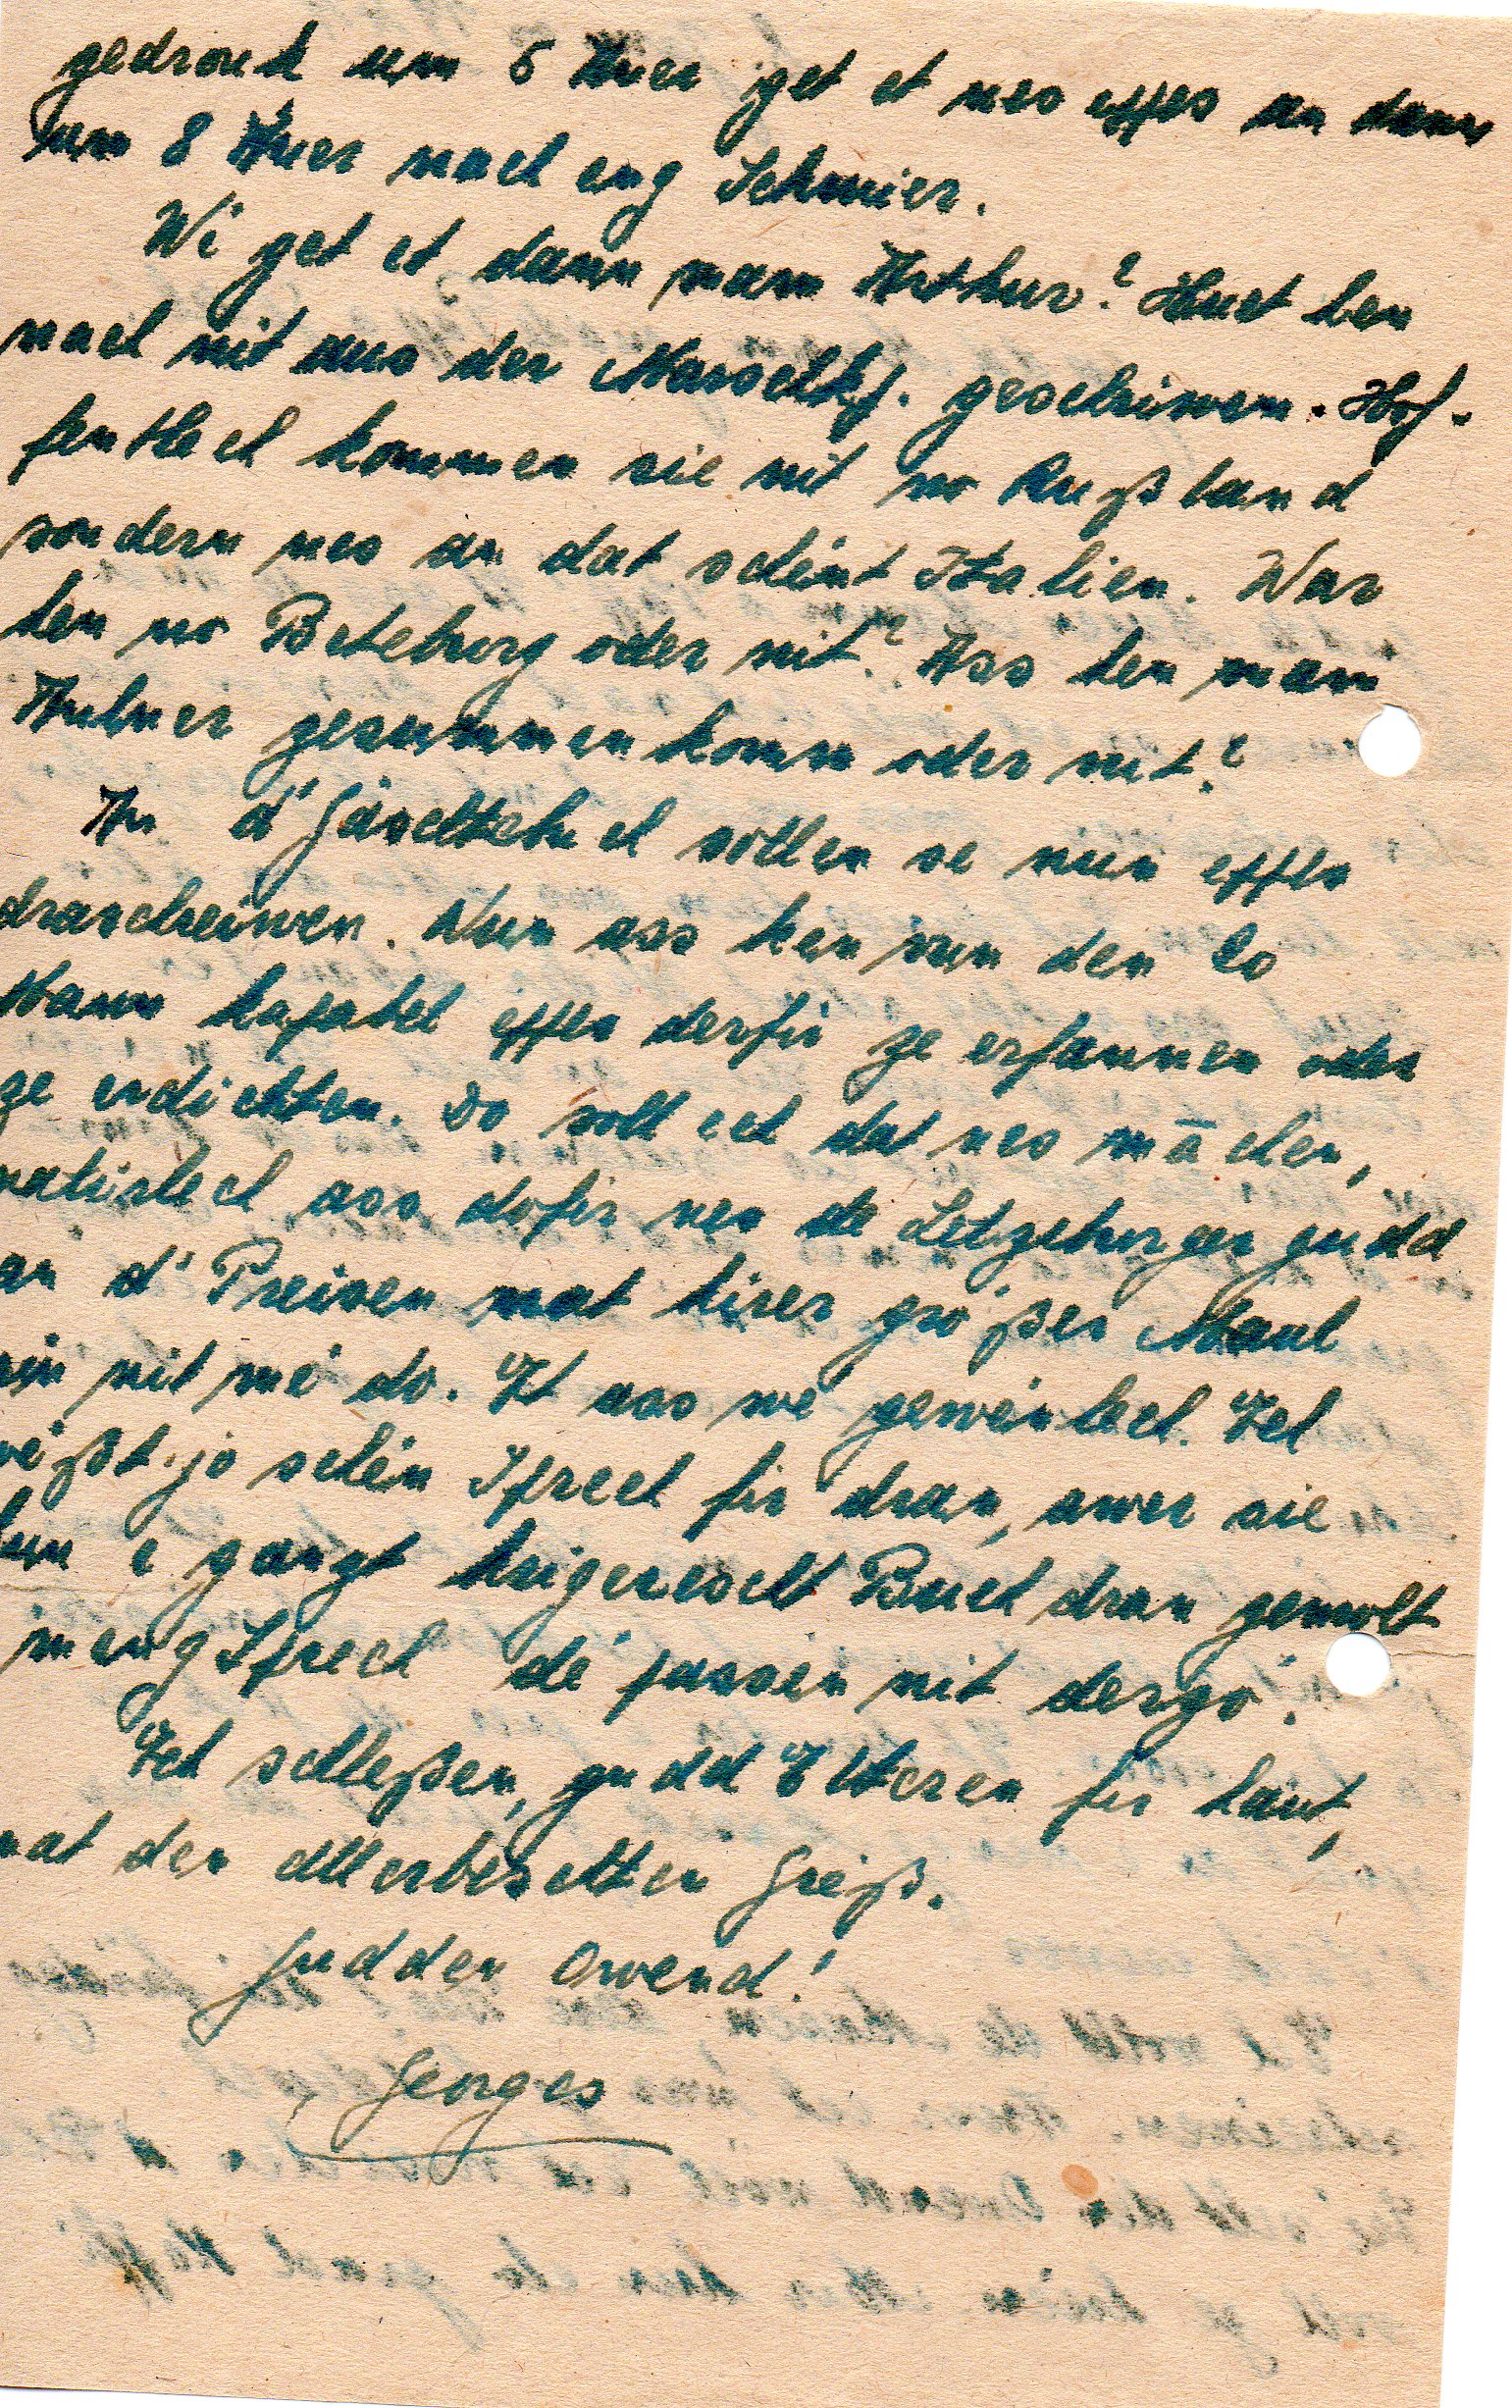 gedronk um 6 Auer get et nes eppes an dann
um 8 Auer nach eng Schmier.
Wi get et dann mam Arthur? Huet hen
nach nit aus der Marschkp. geschriwen. Hof-
fentlech kommen sie nit no Rußland
sondern nes an dat schéint Italien. War
hen no Beteburg oder nit? Ass hen mam
gesummen komm oder nit?
An d' sollen se nun eppes
draschreiwen. Nun ass ken vun den 20
Mann kapabel eppes derfir ze erfannen oder
ze erdichten. Do soll ech dat nes māchen,
natirlech ass dofir nes de Letzeburger gudd
an d' Preisen mat hirer großer Maul
sin nit mé do. Et ass we gewénlech. Ech
wéßt jo schéin Spréch fir dran, awer sie
hun e ganzt Buch dran gemolt
meng Spréch dé passen nit derzó.
Ech schleßen, gudd Elteren fir haut,
mat den allerbeschten Gréiß.
Gudden Owend!
Georges